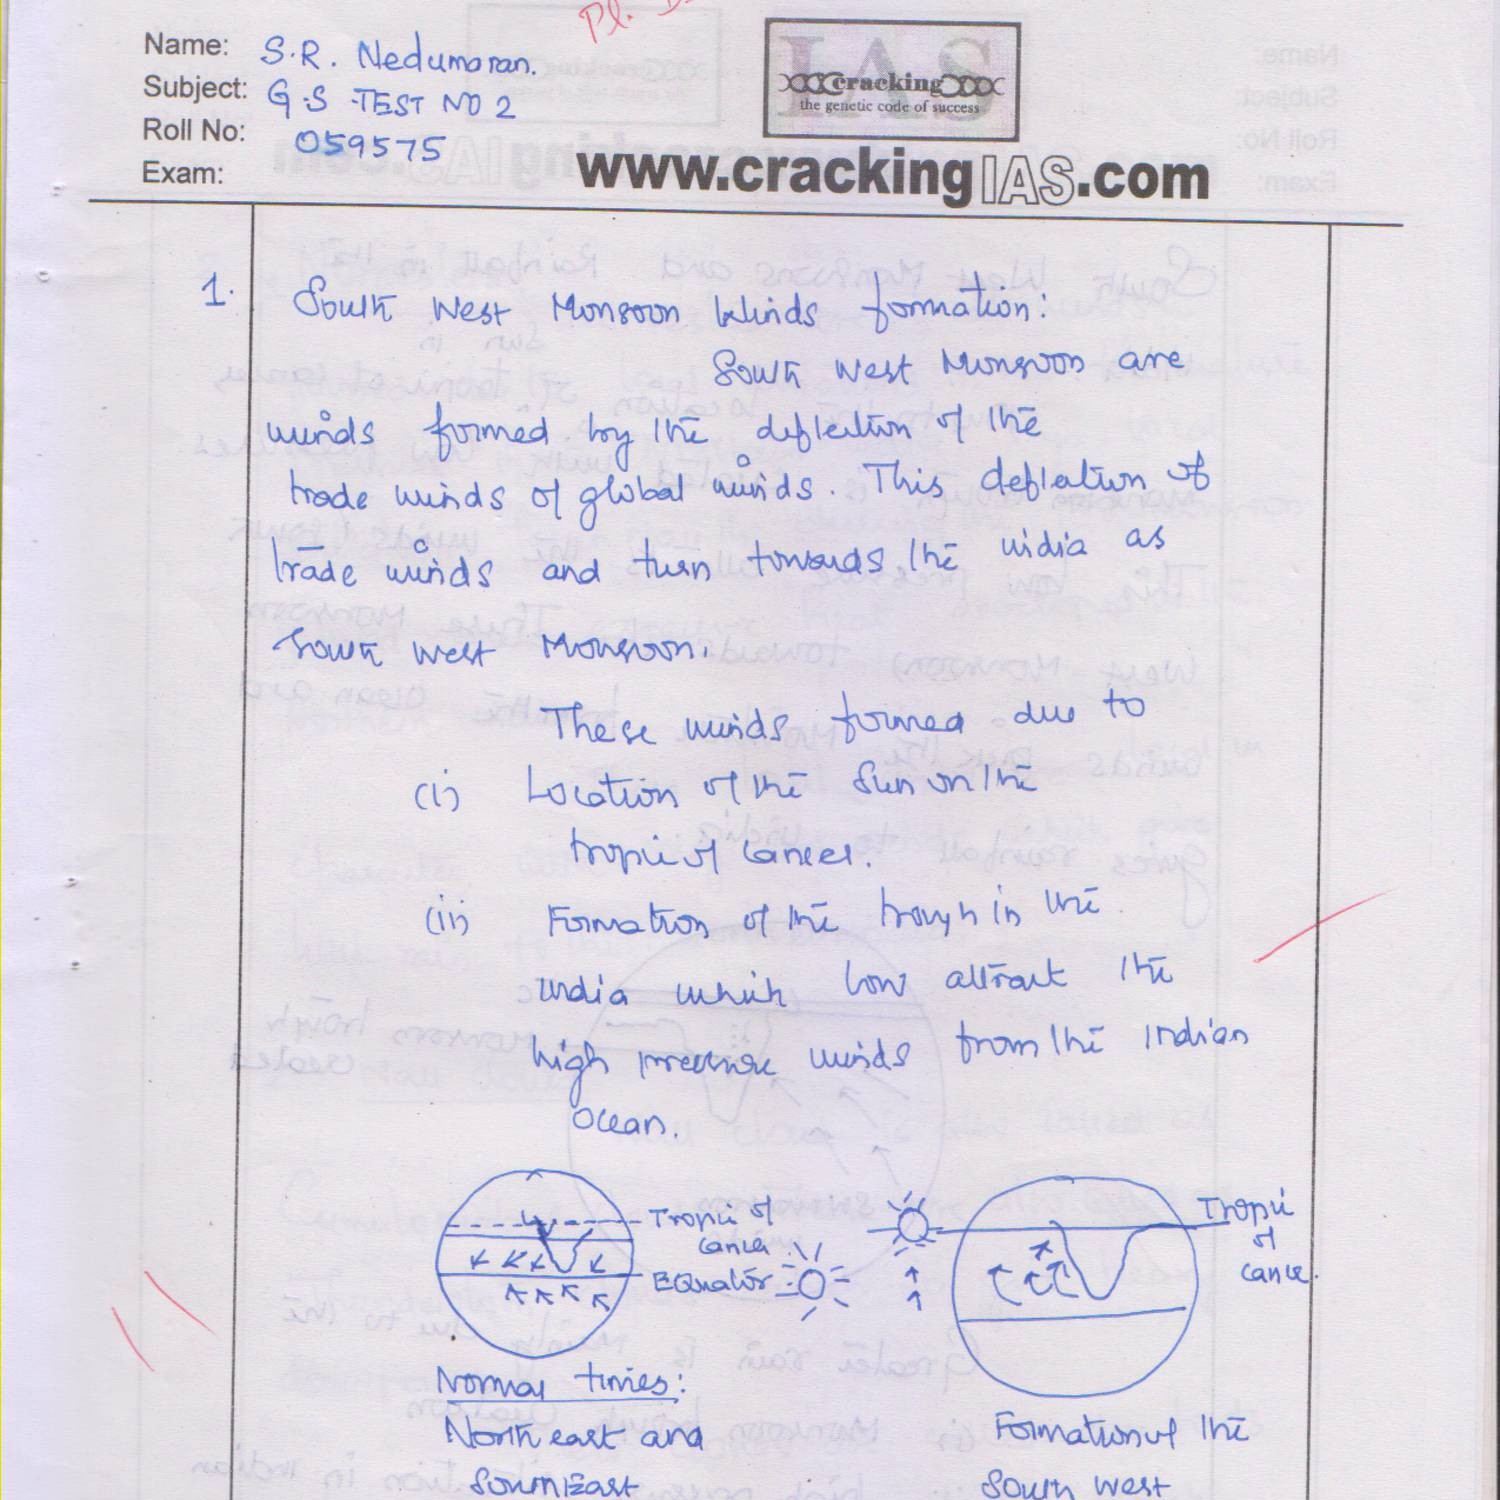 Pl.
Name: S.R. Nedumaran.
Subject: G.S TEST NO 2
Roll No: 059575
Exam:
IAS
cracking
the genetic code of success
www.crackingIAS.com
1. South West Monsoon Winds formation:
South West Monsoon are
winds formed by the deflection of the
trade winds of global winds. This deflation of
trade winds and turn towards the india as
South West Monsoon.
These winds formed due to
(i) Location of the Sun on the
tropic of cancer.
(ii) Formation of the trough in the
india which low attract the
high pressure winds from the Indian
Ocean.
Tropic of
cancer
Equator
Tropic
of
cancer.
Normal times:
North east and
South East
Formation of the
South West